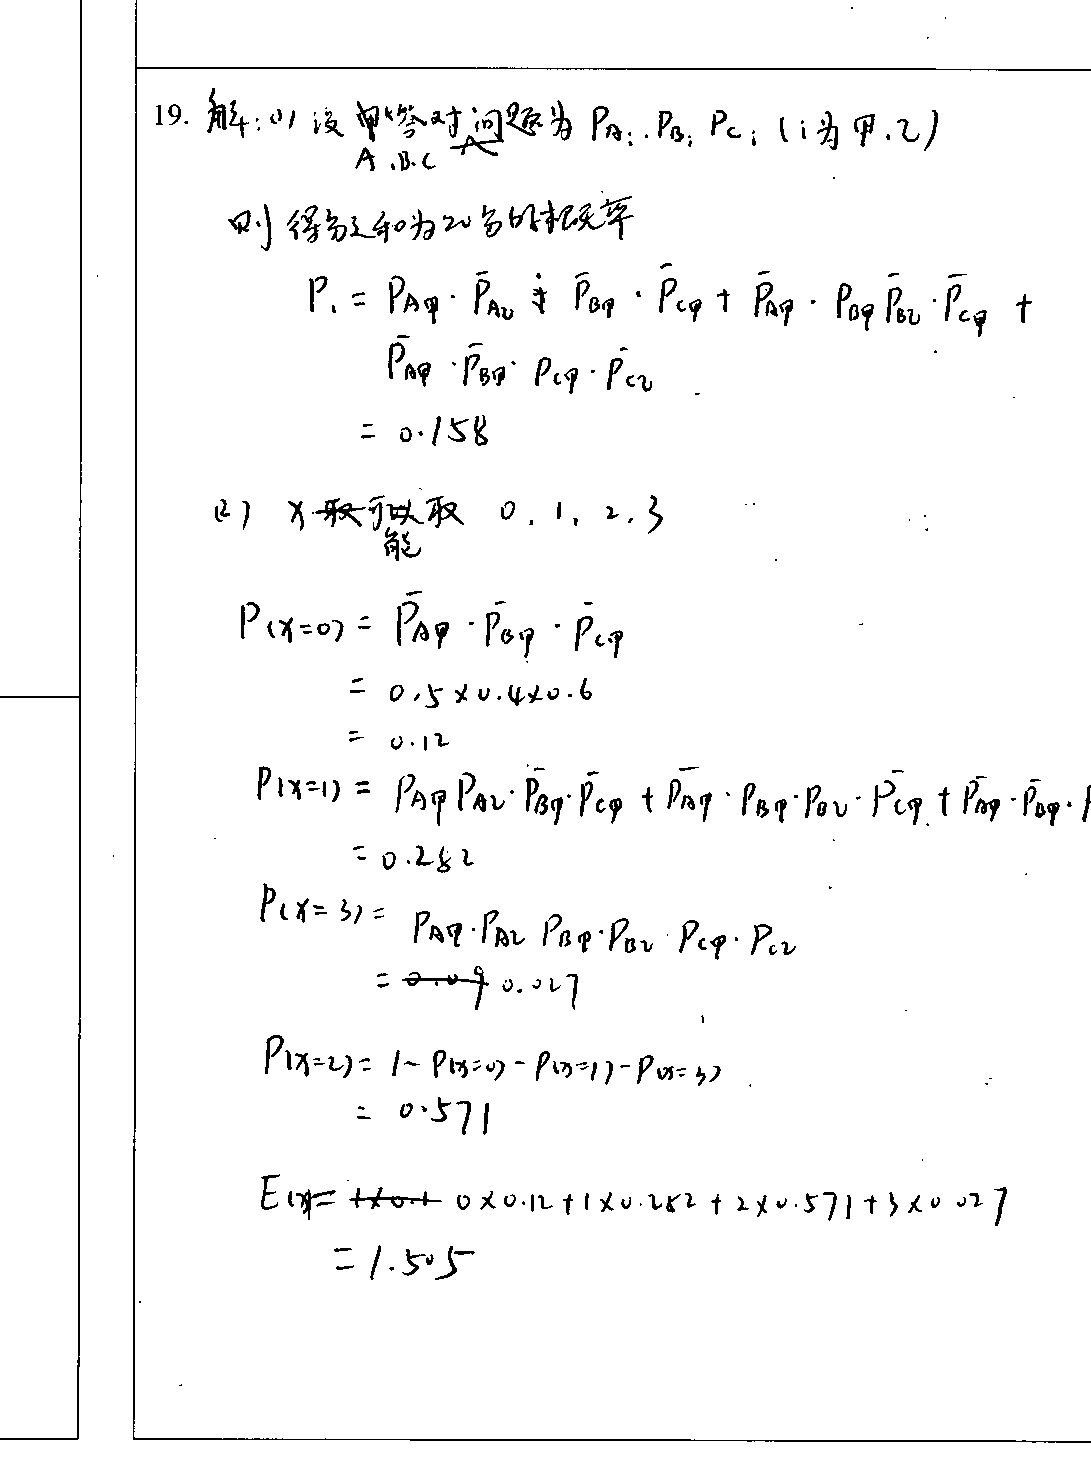 19. 解:(1) 设甲答对问题为 PAi, PBi, PCi (i为甲.乙)
A.B.C
则得分之和为20分的概率
P₁ = PA甲·P̄A乙·P̄B甲·P̄C甲 + P̄A甲·PB甲P̄B乙·P̄C甲 +
P̄A甲·P̄B甲·PC甲·P̄C乙
= 0.158
(2) X取可以取 0, 1, 2, 3
能
P(X=0) = P̄A甲·P̄B甲·P̄C甲
= 0.5×0.4×0.6
= 0.12
P(X=1) = PA甲PA乙·P̄B甲·P̄C甲 + P̄A甲·PB甲·PB乙·P̄C甲 + P̄A甲·P̄B甲·P
= 0.282
P(X=3) = PA甲·PA乙 PB甲·PB乙·PC甲·PC乙
= 0.09 0.027
P(X=2) = 1-P(X=0)-P(X=1)-P(X=3)
= 0.571
E(X)= 1×0.1 0×0.12+1×0.282+2×0.571+3×0.027
= 1.505